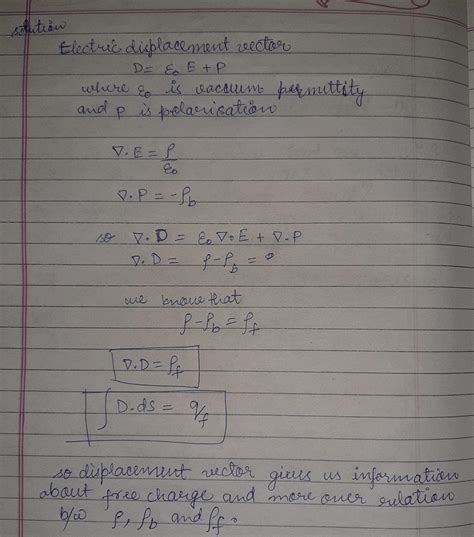 solution
Electric displacement vector
D = ε₀ E + P
where ε₀ is vacuum permittity
and P is polarisation
∇·E = ρ/ε₀
∇·P = -ρb
so ∇·D = ε₀ ∇·E + ∇·P
∇·D = ρ-ρb = 0
we know that
ρ-ρb = ρf
∇·D = ρf
∫D·ds = qf
so displacement vector gives us information
about free charge and more over relation
b/w ρ, ρb and ρf.